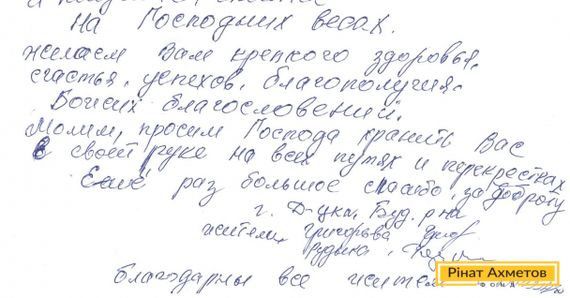 На Господних весах.
желаем Вам крепкого здоровья,
счастья, успехов, благополучия.
Божих благословений.
Молим, просим Господа хранить Вас
в своей руке на всех путях и перекрестках
Ещё раз большое спасибо за доброту
г. Д-цка, Буд. р-на
жители, Григорьева
Рудына,
благодарны все жители
Рінат Ахметов
ФОНД